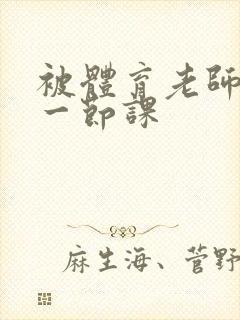 被體育老師
一節課
麻生海、菅野